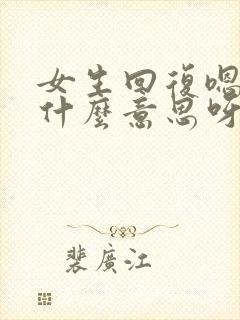 女生回復嗯
什麼意思呀
裴廣江